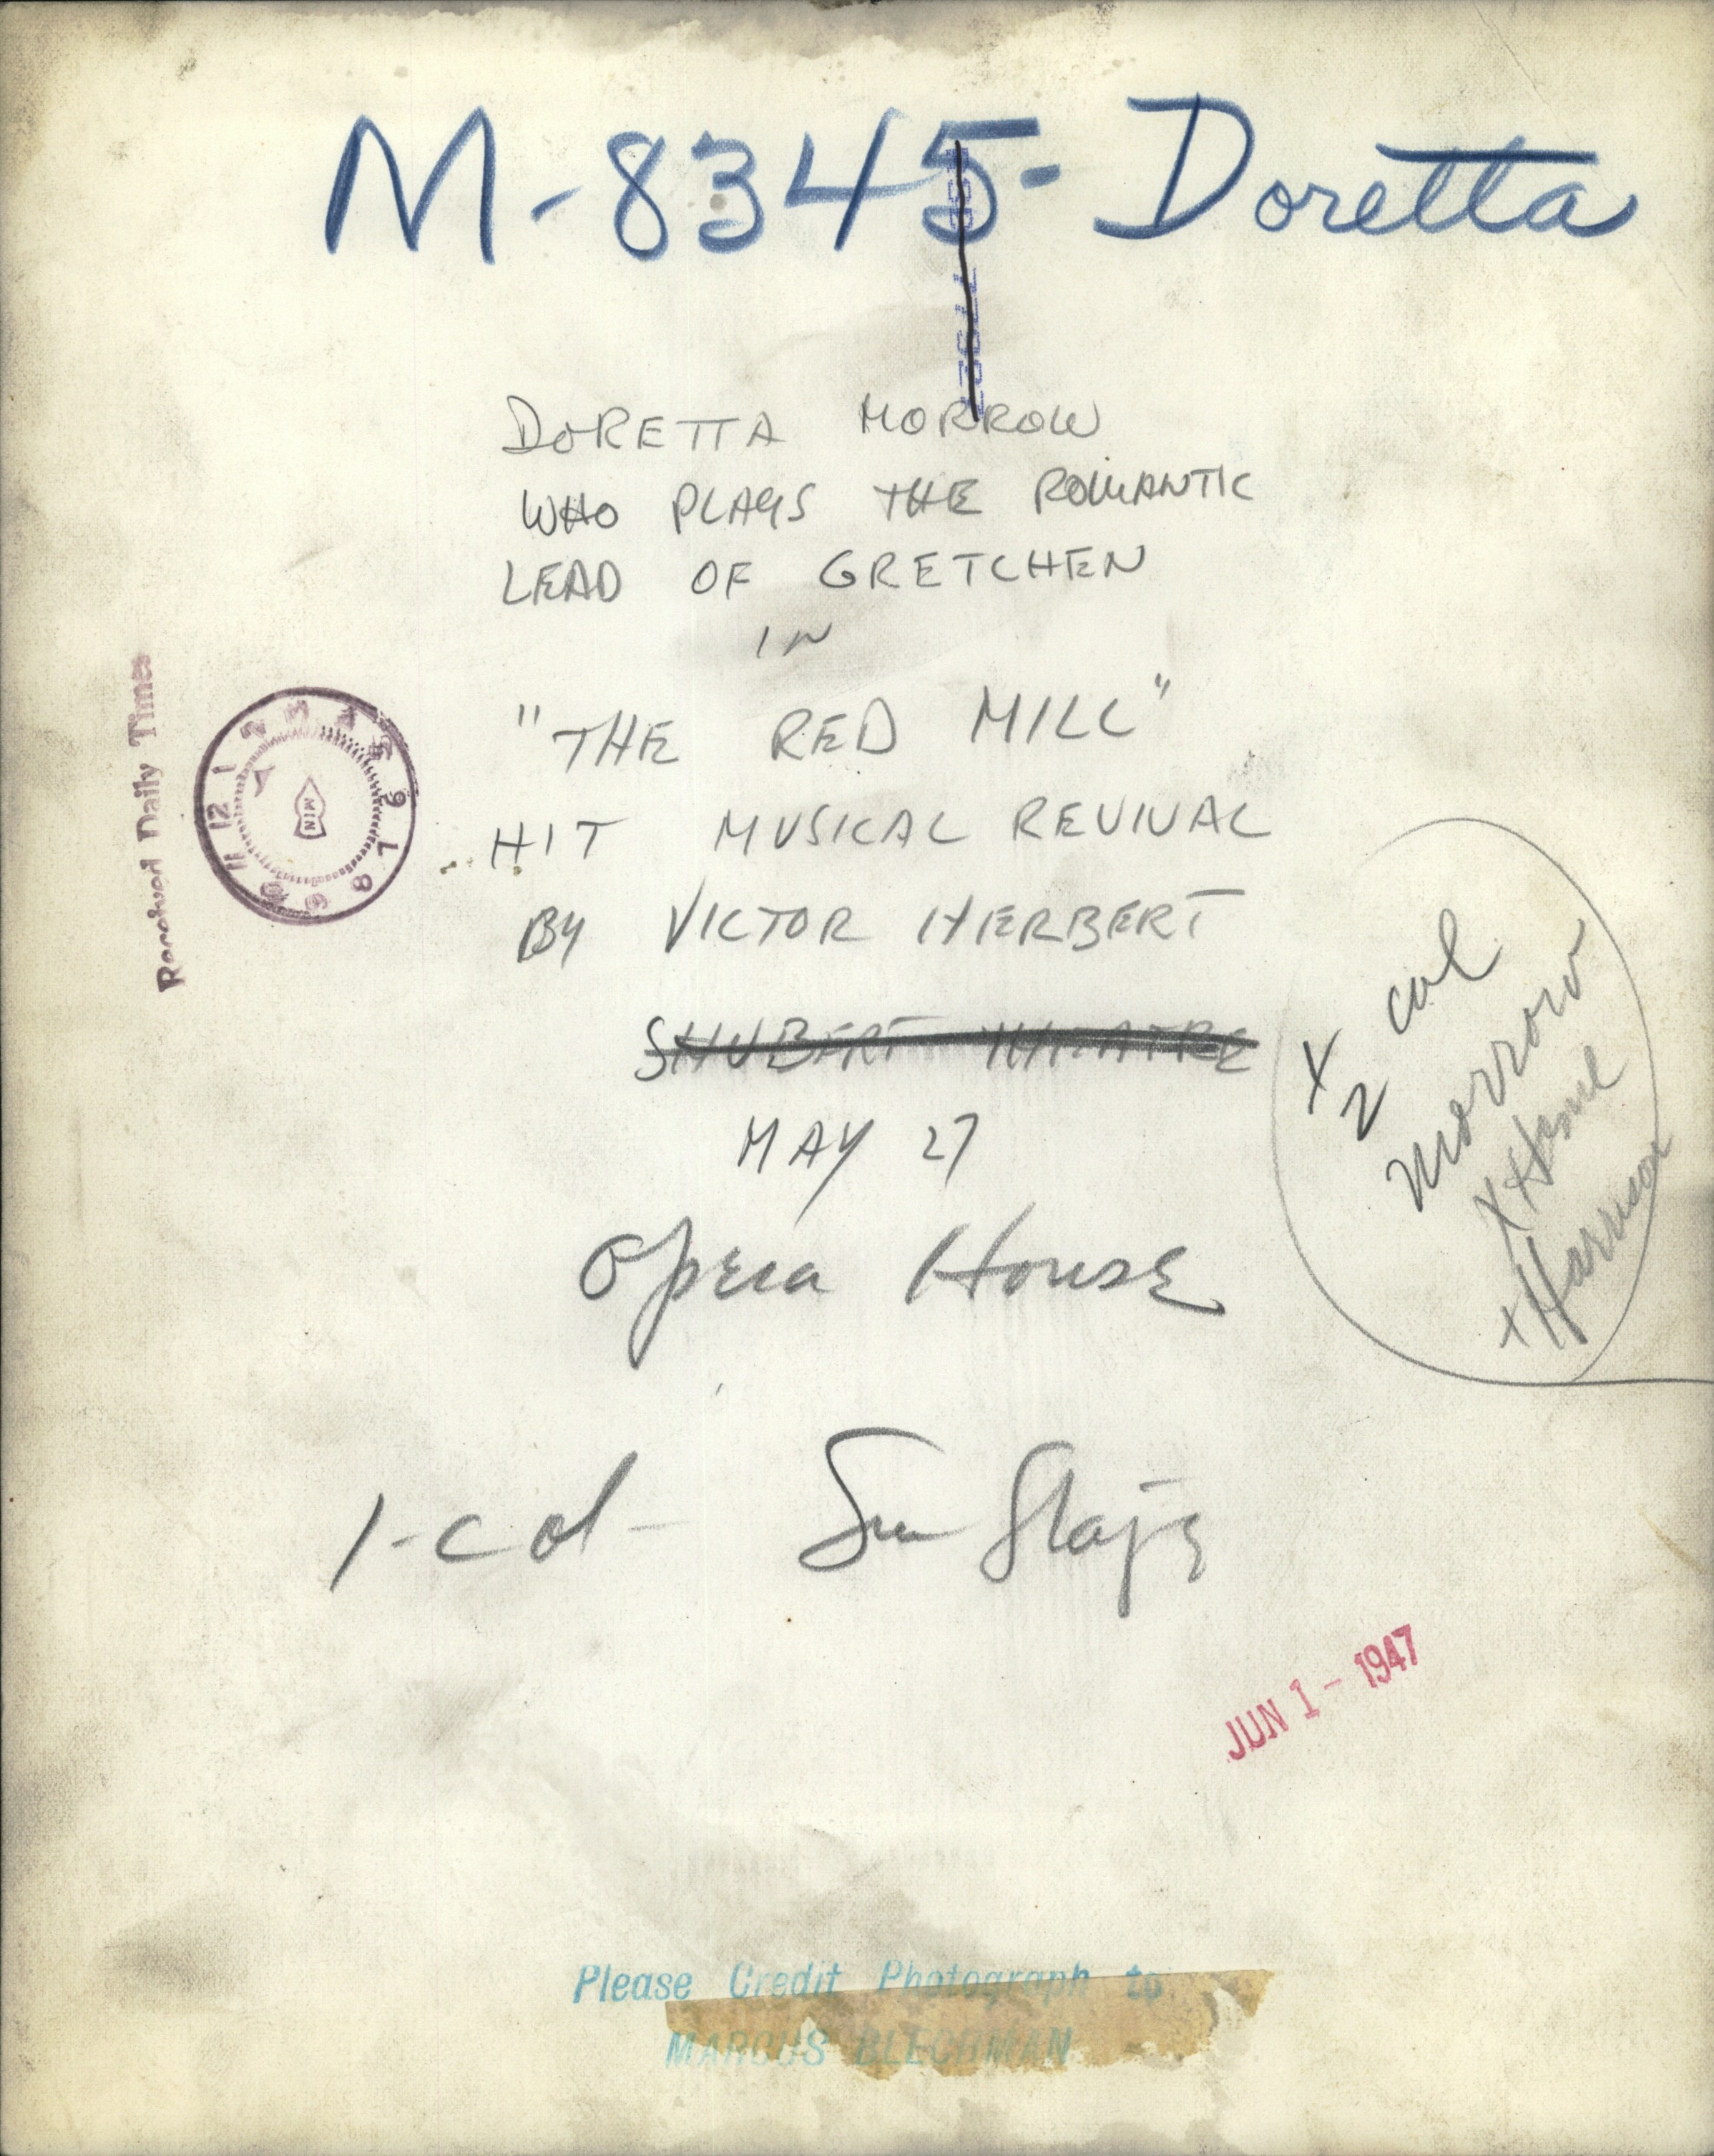 M-8345- Doretta
DORETTA MORROW
WHO PLAYS THE ROMANTIC
LEAD OF GRETCHEN
IN
"THE RED MILL"
HIT MUSICAL REVIVAL
BY VICTOR HERBERT
SHUBERT THEATRE
MAY 27
Opera House
1-col- Sun Stage
Received Daily Times
1 2 3 4 5 6 7 8 9 10 11 12
MIN
X 2 col
Morrow
+ Harrison
JUN 1 - 1947
Please Credit Photograph to
MARCUS BLECHMAN